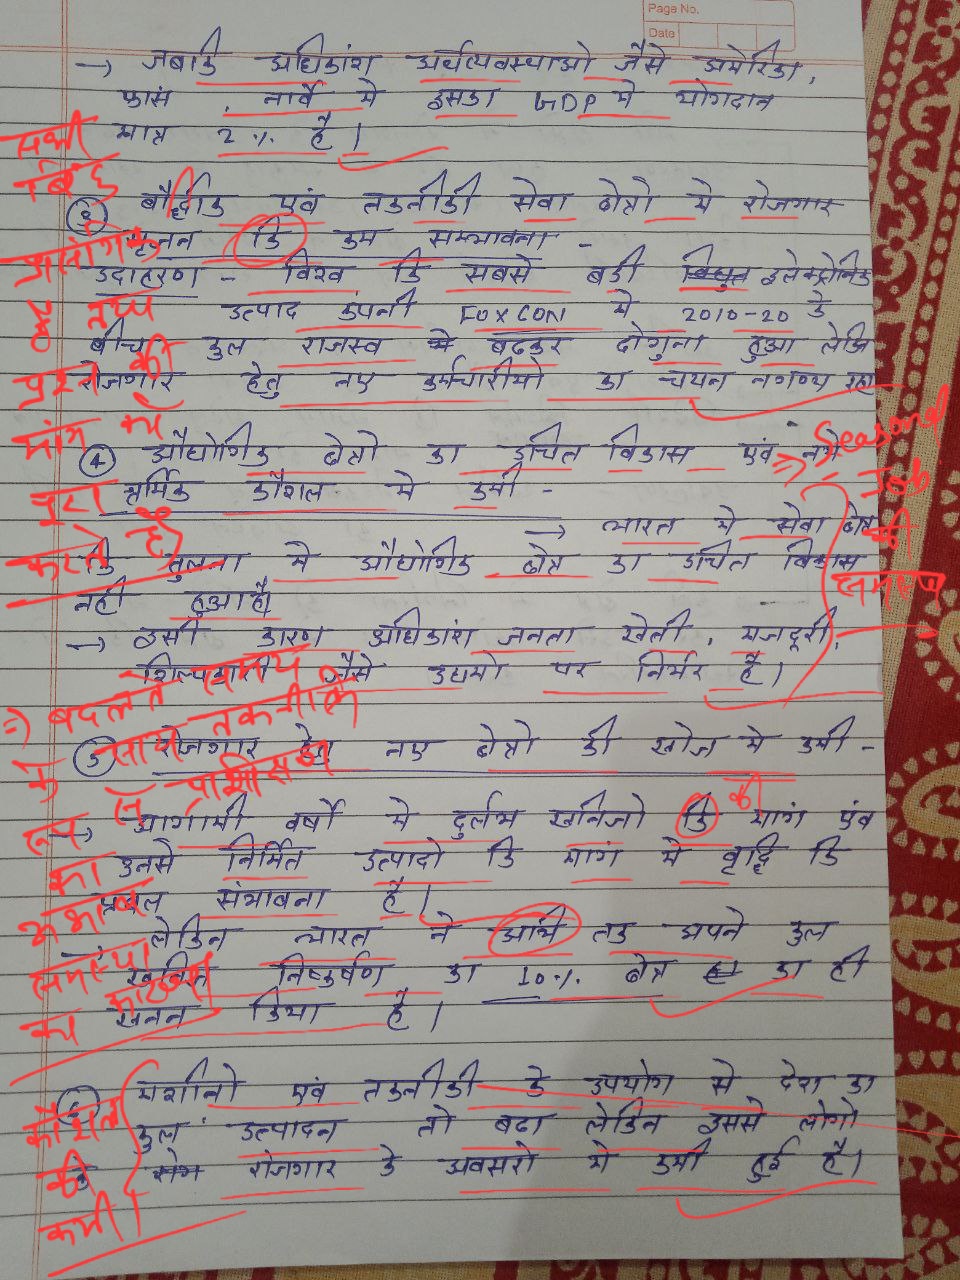 Page No.
Date
→ जबकि अधिकांश अर्थव्यवस्थाओ जैसे अमेरिका,
फ्रांस , नार्वे मे इसका GDP मे योगदान
मात्र 2 % है।
सभी बिंदु प्रासंगिक है तथ्य प्रश्न की मांग को पूरा करते है
③ बौद्धिक एवं तकनीकी सेवा क्षेत्रो मे रोजगार
सृजन कि कम सम्भावना -
उदाहरण - विश्व कि सबसे बडी इलेक्ट्रोनिक
उत्पाद कंपनी FOXCON मे 2010-20 के
बीच कुल राजस्व बढकर दोगुना हुआ लेकिन
रोजगार हेतु नए कर्मचारीयो का चयन नगण्य रहा
④ औद्योगिक क्षेत्रो का उचित विकास एवं नये
श्रमिक कौशल मे कमी -
→ भारत मे सेवा क्षेत्र
कि तुलना मे औद्योगिक क्षेत्र का उचित विकास
नही हुआ है।
→ इसी कारण अधिकांश जनता खेती, मजदूरी,
शिल्पकारी जैसे उद्यमो पर निर्भर है।
⇒ Seasonal Job की समस्या
⇒ बदलते समय के साथ तकनीकि रूप से प्रशिक्षण का अभाव समस्या का कारण
⑤ रोजगार हेतु नए क्षेत्रो की खोज मे कमी -
→ आगामी वर्षो मे दुर्लभ खनिजो कि मांग एवं
की
उनसे निर्मित उत्पादो कि मांग मे वृद्धि कि
प्रबल संभावना है।
→ लेकिन भारत ने अभि तक अपने कुल
खनिज निष्कर्षण का 10 % क्षेत्र का ही
खनन किया है।
मशीनो एवं तकनीकी के उपयोग से देश का
कुल उत्पादन तो बढा लेकिन इससे लोगो
के रोजगार के अवसरो मे कमी हुई है।
कौशल की कमी